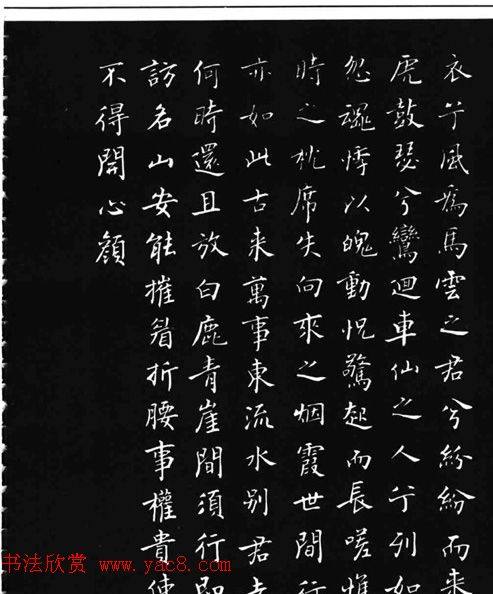 衣兮風為馬雲之君兮紛紛而来
虎鼓瑟兮鸞迴車仙之人兮列如
忽魂悸以魄動怳驚起而長嗟惟
時之枕席失向來之烟霞世間行
亦如此古来萬事東流水別君去
何時還且放白鹿青崖間須行即
訪名山安能摧眉折腰事權貴使
不得開心顔
书法欣赏 www.yac8.com